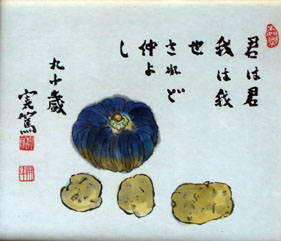 君は君
我は我
也
されど
仲よ
し
九十歳
実篤